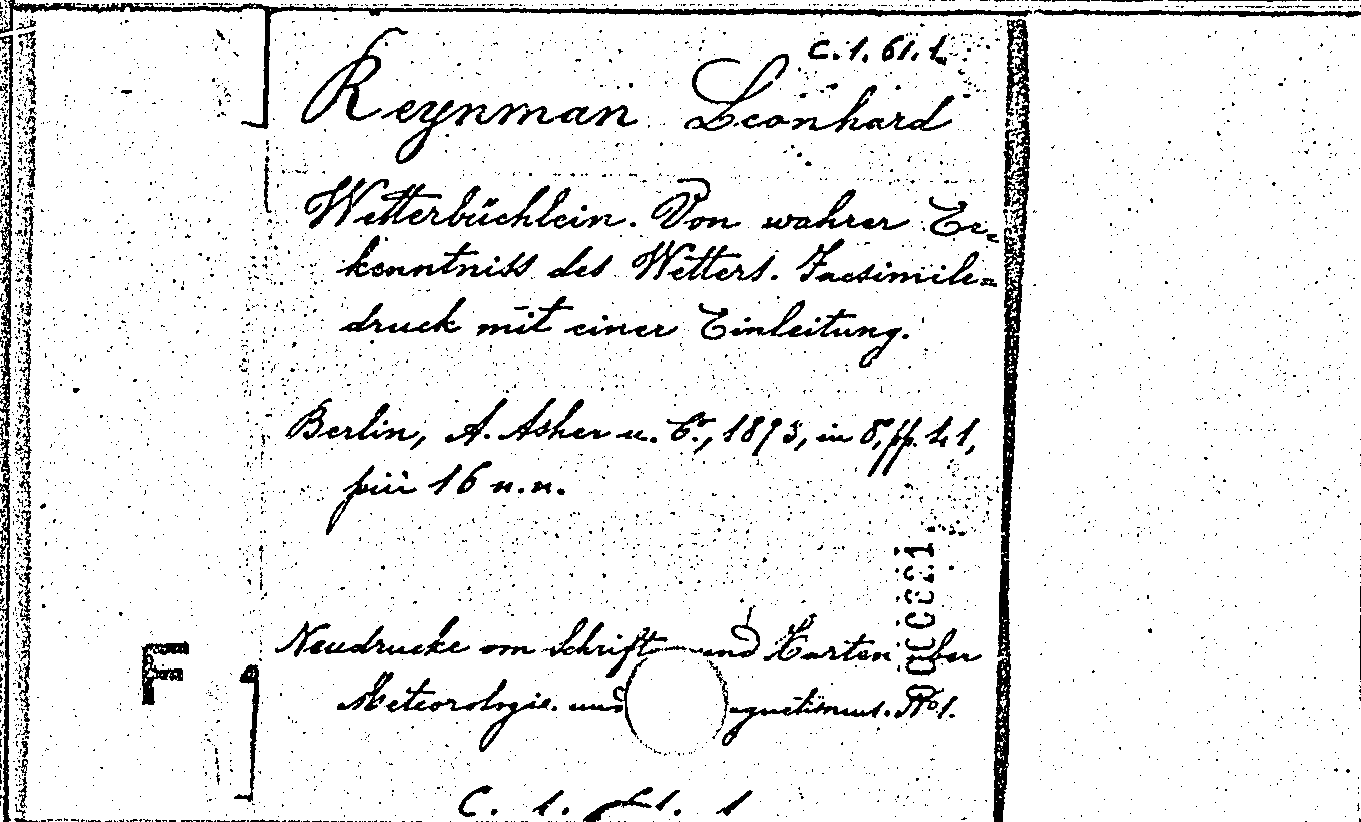 C. 1. 61. 1.
Reynman Leonhard
Wetterbüchlein. Von wahrer Er=
kenntniss des Wetters. Facsimile=
druck mit einer Einleitung.
Berlin, A. Asher u. Co., 1893, in 8°, pp. 41,
più 16 n.n.
Neudrucke von Schrift und Karten über
Meteorologie und gnetismus. No 1.
F
C. 1. 61. 1